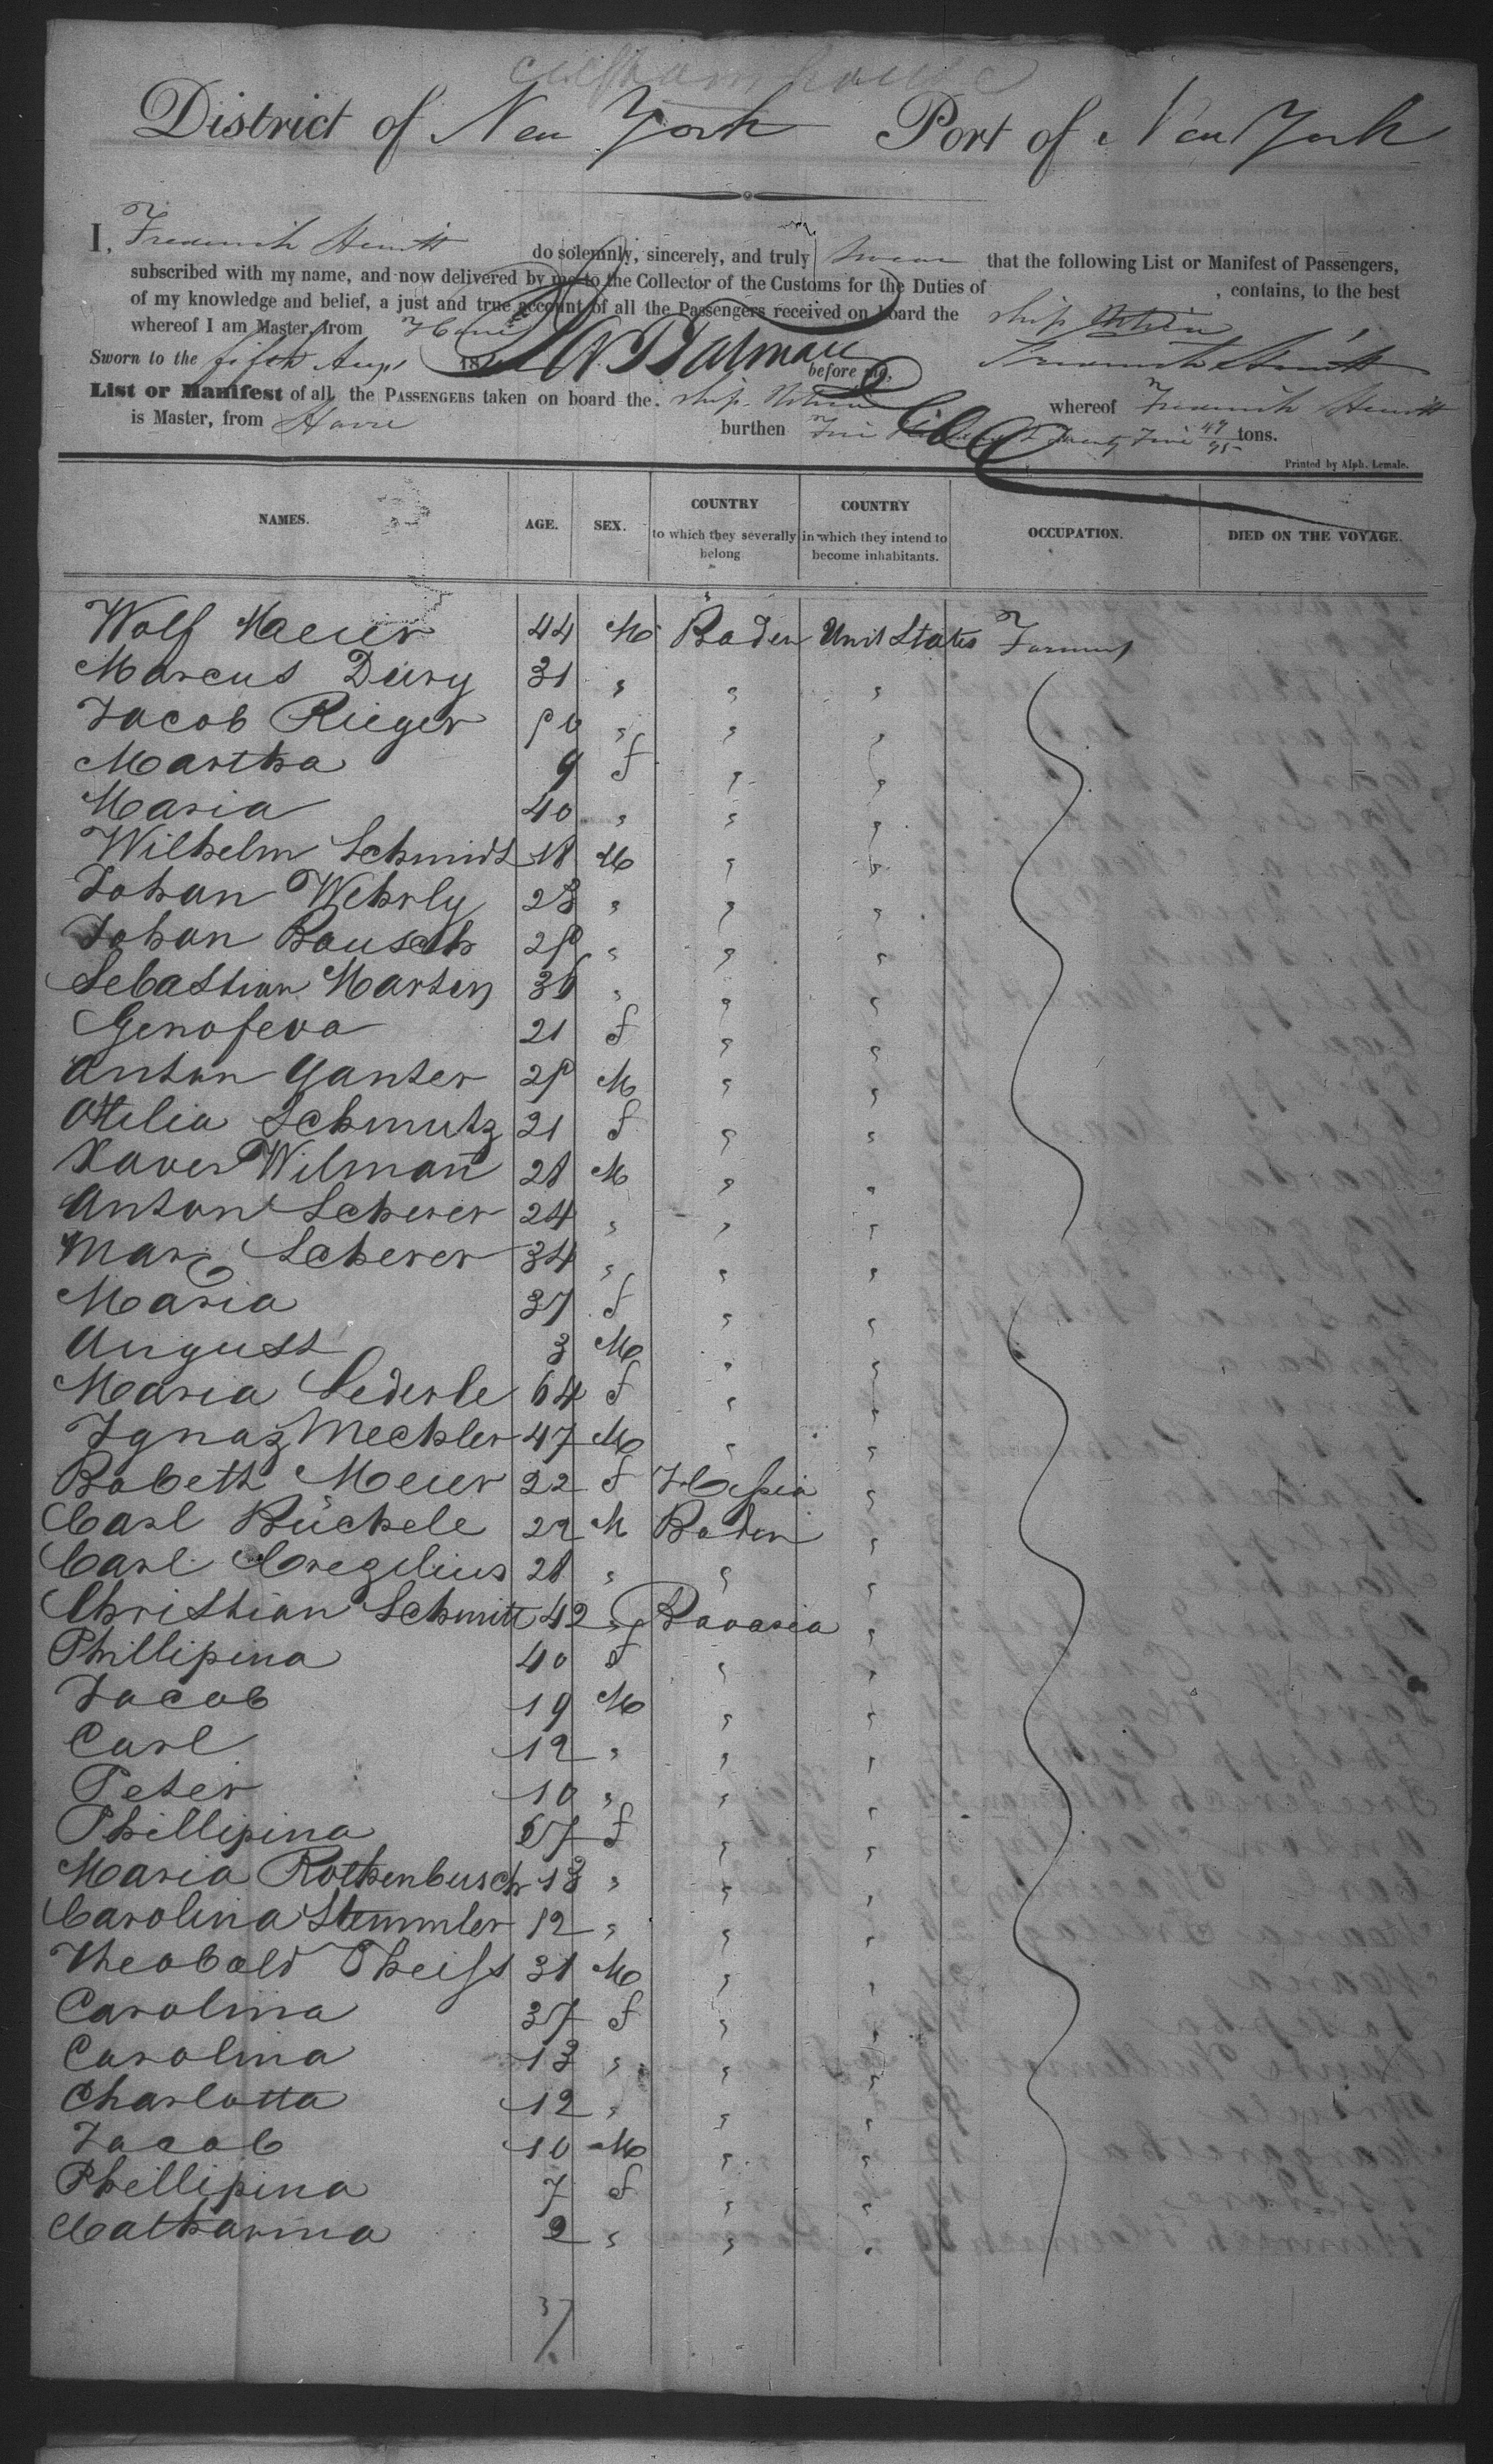 custom house
District of New York Port of New York
I, Frederick Hewitt do solemnly, sincerely, and truly swear that the following List or Manifest of Passengers,
subscribed with my name, and now delivered by me to the Collector of the Customs for the Duties of , contains, to the best
of my knowledge and belief, a just and true account of all the Passengers received on board the ship
whereof I am Master, from Havre
Sworn to the fifth Augt 18 before me, Frederick Hewitt
List or Manifest of all the PASSENGERS taken on board the ship whereof Frederick Hewitt
is Master, from Havre burthen Five Hundred & Twenty Five 49/95 tons.
Printed by Alph. Lemale.
NAMES. AGE. SEX. COUNTRY to which they severally belong COUNTRY in which they intend to become inhabitants. OCCUPATION. DIED ON THE VOYAGE.
Wolf Maeier 44 M Baden Unit States Farmers
Marcus Dury 31 " " "
Jacob Rieger 50 " " "
Martha 9 f " "
Maria 40 " " "
Wilhelm Schmidt 18 M " "
Johan Wehrly 28 " " "
Johan Bausch 25 " " "
Sebastian Martin 36 " " "
Genofeva 21 f " "
Anton Ganter 25 M " "
Otilia Schmutz 21 f " "
Xaver Wilmañ 28 M " "
Anton Scherer 24 " " "
Marx Scherer 34 " " "
Maria 37 f " "
August 3 M " "
Maria Lederle 64 f " "
Ignaz Mechler 47 M " "
Babeth Meier 22 f Hessia "
Carl Büchele 22 M Baden "
Carl 28 " " "
Christian Schmitt 42 " Bavaria "
Phillipina 40 f " "
Jacob 19 M " "
Carl 12 " " "
Peter 10 " " "
Phillipina 67 f " "
Maria Rothenbusch 13 " " "
Carolina Stemmler 12 " " "
Theobald Theiss 31 M " "
Carolina 37 f " "
Carolina 13 " " "
Charlotta 12 " " "
Jacob 10 M " "
Phillipina 7 f " "
Catharina 2 " " "
37